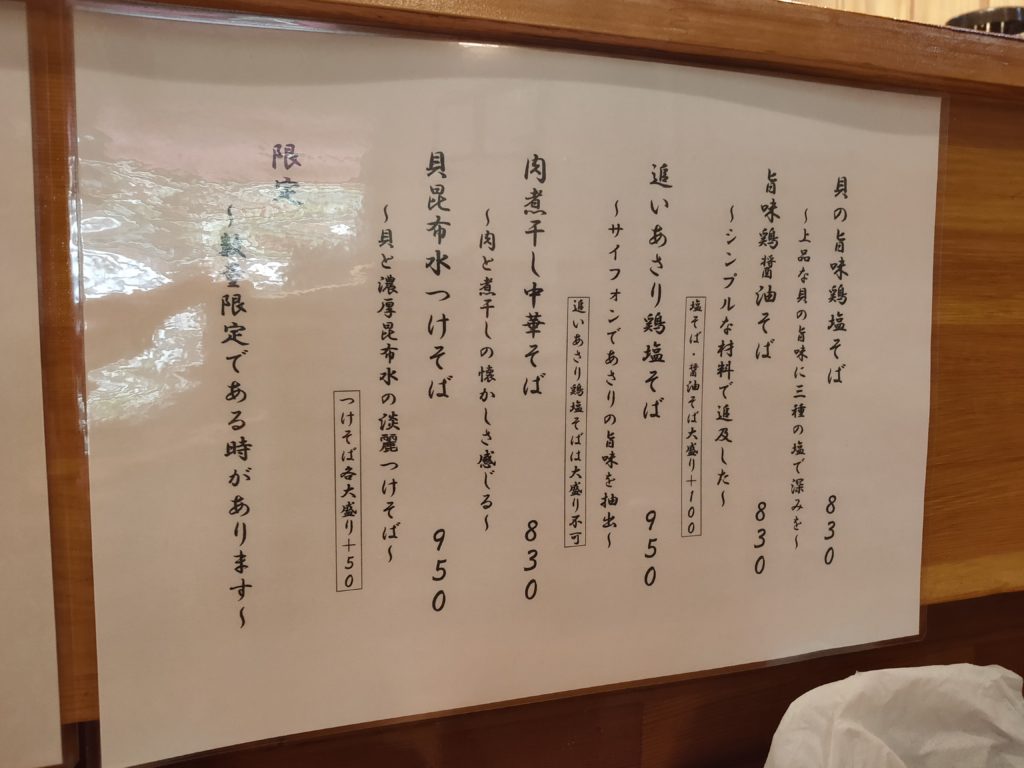 貝の旨味鶏塩そば 830
~上品な貝の旨味に三種の塩で深みを~
旨味鶏醤油そば 830
~シンプルな材料で追及した~
塩そば・醤油そば大盛り+100
追いあさり鶏塩そば 950
~サイフォンであさりの旨味を抽出~
追いあさり鶏塩そばは大盛り不可
肉煮干し中華そば 830
~肉と煮干しの懐かしさ感じる~
貝昆布水つけそば 950
~貝と濃厚昆布水の淡麗つけそば~
つけそば各大盛り+50
限定
~数量限定である時があります~